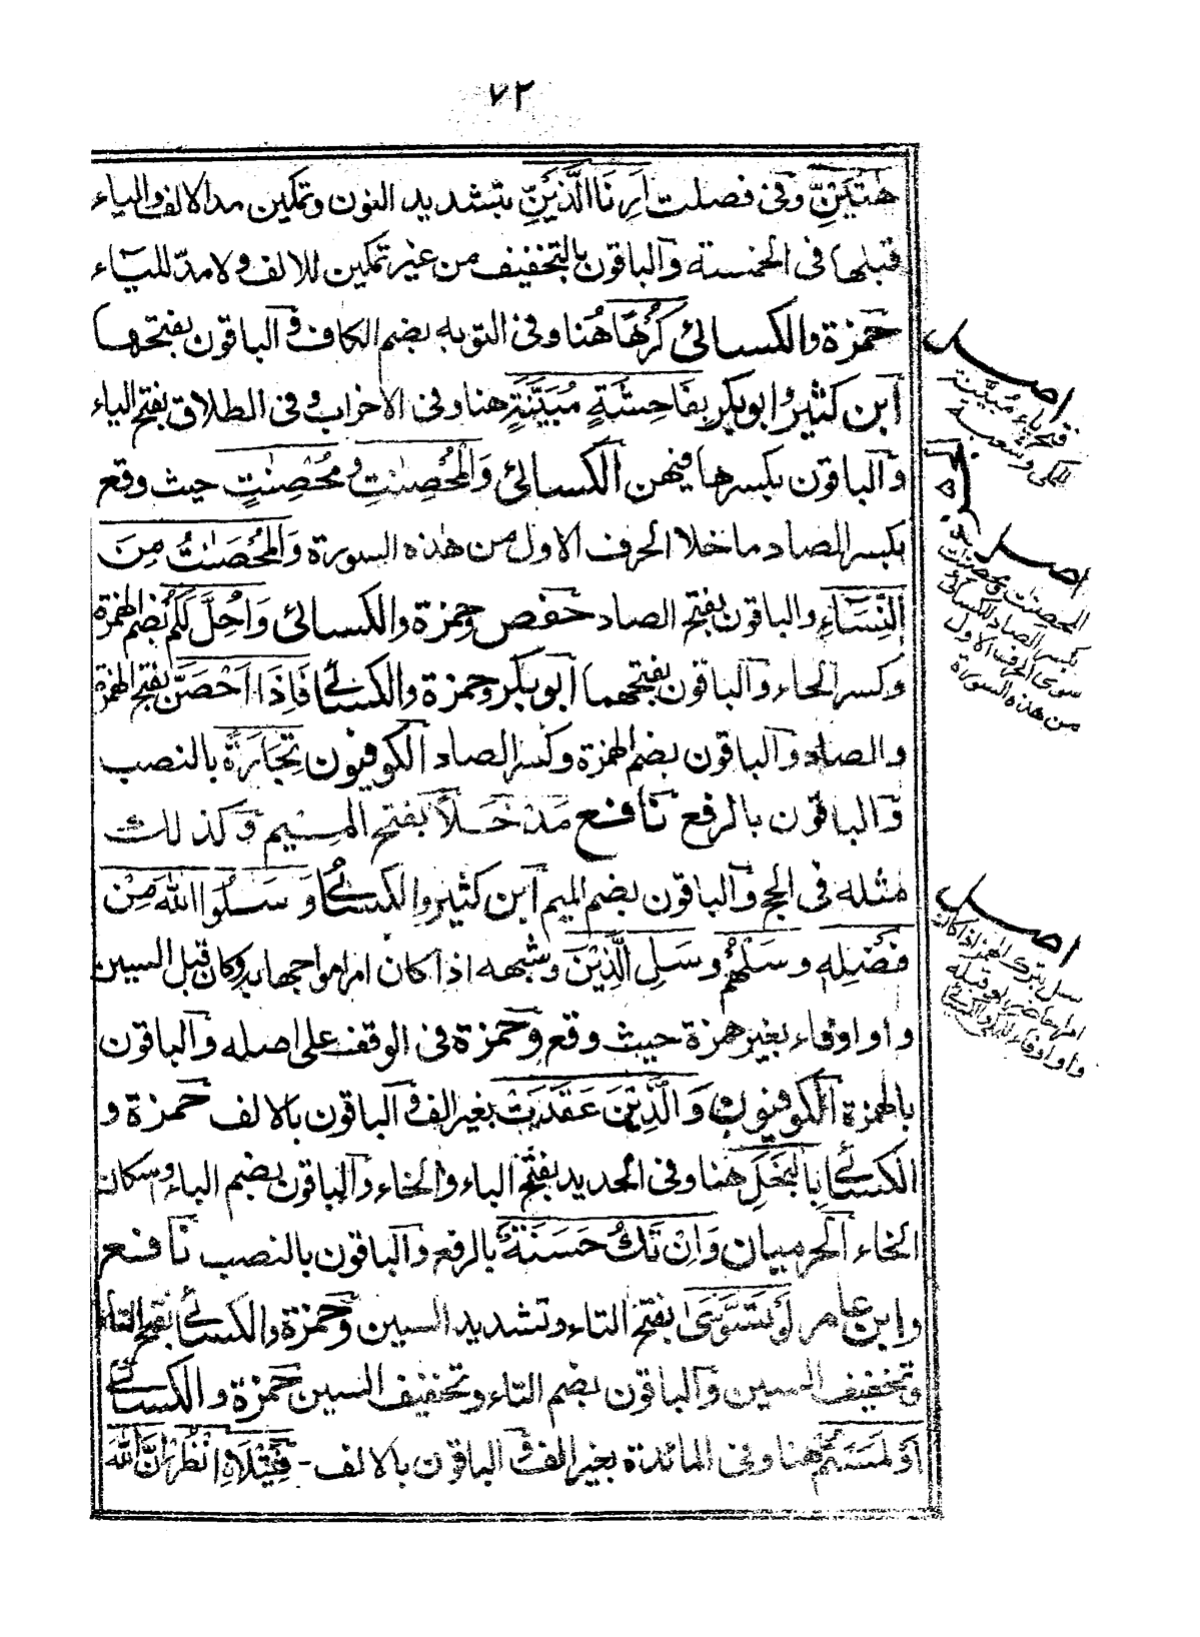 ٧٢
هٰتَيْنِّ وفى فصلت اَرِنَا الَّذَيْنِّ بتشديد النون وتمكين مد الالف والياء
قبلها فى الخمسة والباقون بالتخفيف من غير تمكين للالف ولا مدّ للياء
حمزة والكسائى كُرْهًا هُنا وفى التوبه بضم الكاف والباقون بفتحها
ابن كثير وابوبكر بفَاحِشَةٍ مُبَيَّنَةٍ هنا وفى الاحزاب وفى الطلاق بفتح الياء
والباقون بكسرها فيهن الكسائى وَالْمُحْصِنٰتِ ومُحْصِنٰتٍ حيث وقع
بكسر الصاد ما خلا الحرف الاول من هذه السورة وَالْمُحْصَنٰتُ مِنَ
النِّسَاءِ والباقون بفتح الصاد حفص وحمزة والكسائى وَاُحِلَّ لَكُمْ بضم الهمزة
وكسر الحاء والباقون بفتحهما ابوبكر وحمزة والكسائى فَاِذَا اَحْصَنَّ بفتح الهمزة
والصاد والباقون بضم الهمزة وكسر الصاد الكوفيون تِجَارَةً بالنصب
والباقون بالرفع نافع مَدْخَلاً بفتح الميم وكذلك
مثله فى الحج والباقون بضم الميم ابن كثير والكسائى وَسَلُوا اللهَ مِنْ
فَضْلِهِ وسَلْهُمْ وسَلِ الَّذِيْنَ وشبهه اذا كان امرا مواجها به وكان قبل السين
واو او فاء بغير همزة حيث وقع وحمزة فى الوقف على اصله والباقون
بالهمزة الكوفيون وَالَّذِيْنَ عَقَدَتْ بغير الف والباقون بالالف حمزة و
الكسائى بِالْبَخَلِ هنا وفى الحديد بفتح الباء والخاء والباقون بضم الباء واسكان
الخاء الحرميان وَاِنْ تَكُ حَسَنَةٌ بالرفع والباقون بالنصب نافع
وابن عامر لَوْ تَسَّوَّى بفتح التاء وتشديد السين وحمزة والكسائى بفتح التاء
وتخفيف السين والباقون بضم التاء وتخفيف السين حمزة والكسائى
اَوْ لَمَسْتُمْ هنا وفى المائدة بغير الف والباقون بالالف - فَتِيْلًا انْظُرْ اَنَّ الله
اصل
فتح ياء مُبيَّنة
للمكى وشعبة
اصل
المحصنات ومحصنات
بكسر الصاد للكسائى
سوى الحرف الاول
من هذه السورة
اصل
سل بترك الهمز اذا كان
امرا حاضرا وقبله
واو او فاء للمكى والكسائى